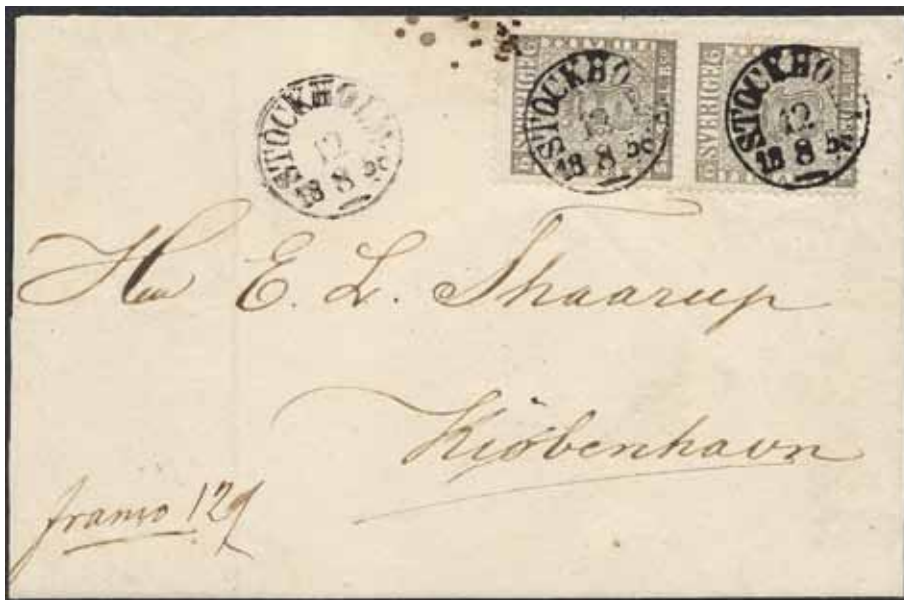 STOCKHOLM
12
18 8 58
SVERIGE
STOCKHO
12
18 8
SVERIGE
STOCKHO
12
18 8
Herr E. L. Thaarup
Kjöbenhavn
franco 12